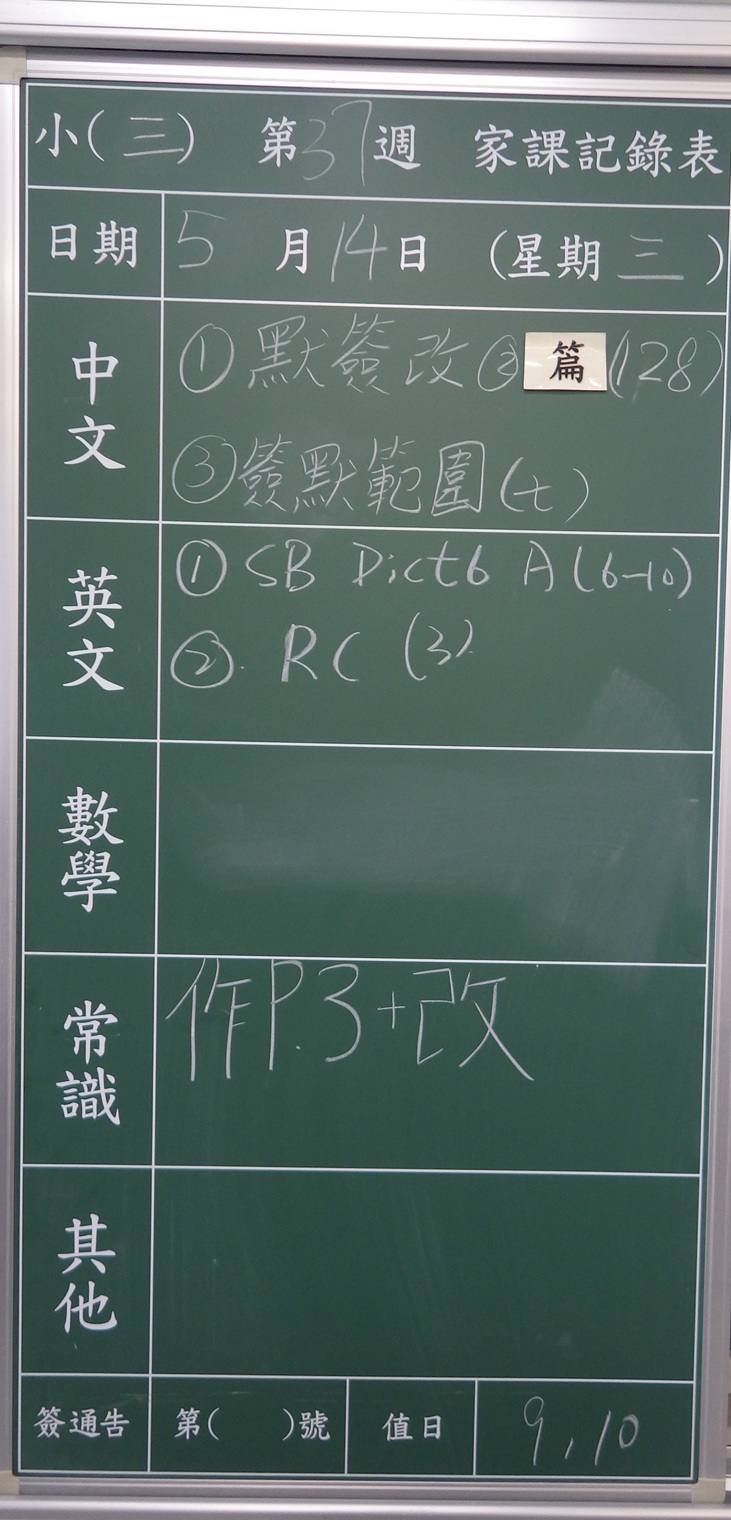 小(三) 第37週 家課記錄表
日期 5月14日 (星期三)
中文 ①默簽改②篇(128)
③簽默範圍(七)
英文 ① SB Dict6 A(6-10)
②. RC (3).
數學
常識 作P.3+改
其他
簽通告 第( )號 值日 9,10